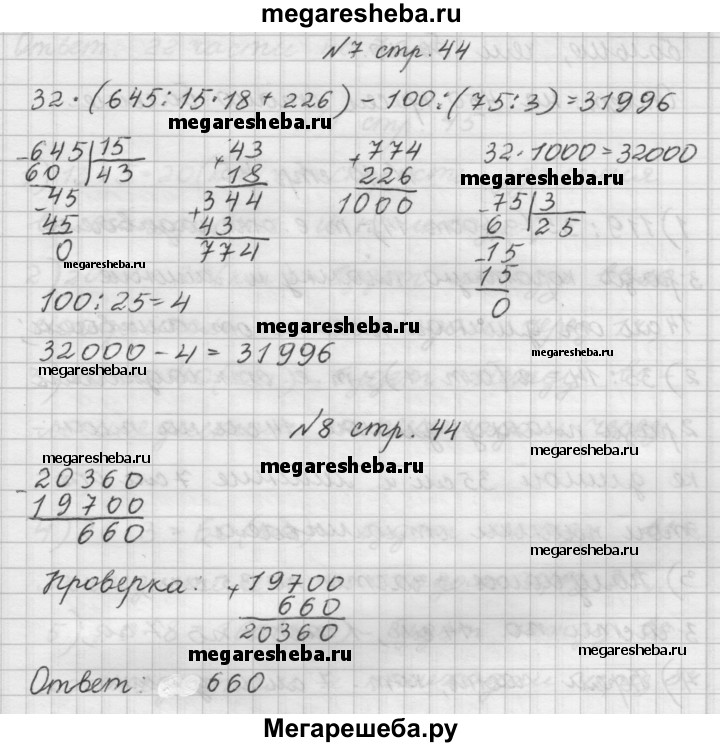 megaresheba.ru
№7 стр. 44
32·(645:15·18+226)-100:(75:3)=31996
megaresheba.ru
-645|15
60 43
-45
45
0
megaresheba.ru
×43
18
+344
43
774
+774
226
1000
32·1000=32000
megaresheba.ru
-75|3
6 25
-15
15
0
100:25=4
megaresheba.ru
32000-4=31996
megaresheba.ru
megaresheba.ru
№8 стр. 44
megaresheba.ru
megaresheba.ru
megaresheba.ru
-20360
19700
660
megaresheba.ru
Проверка:
+19700
660
20360
megaresheba.ru
megaresheba.ru
Ответ: 660
megaresheba.ru
Мегарешеба.ру